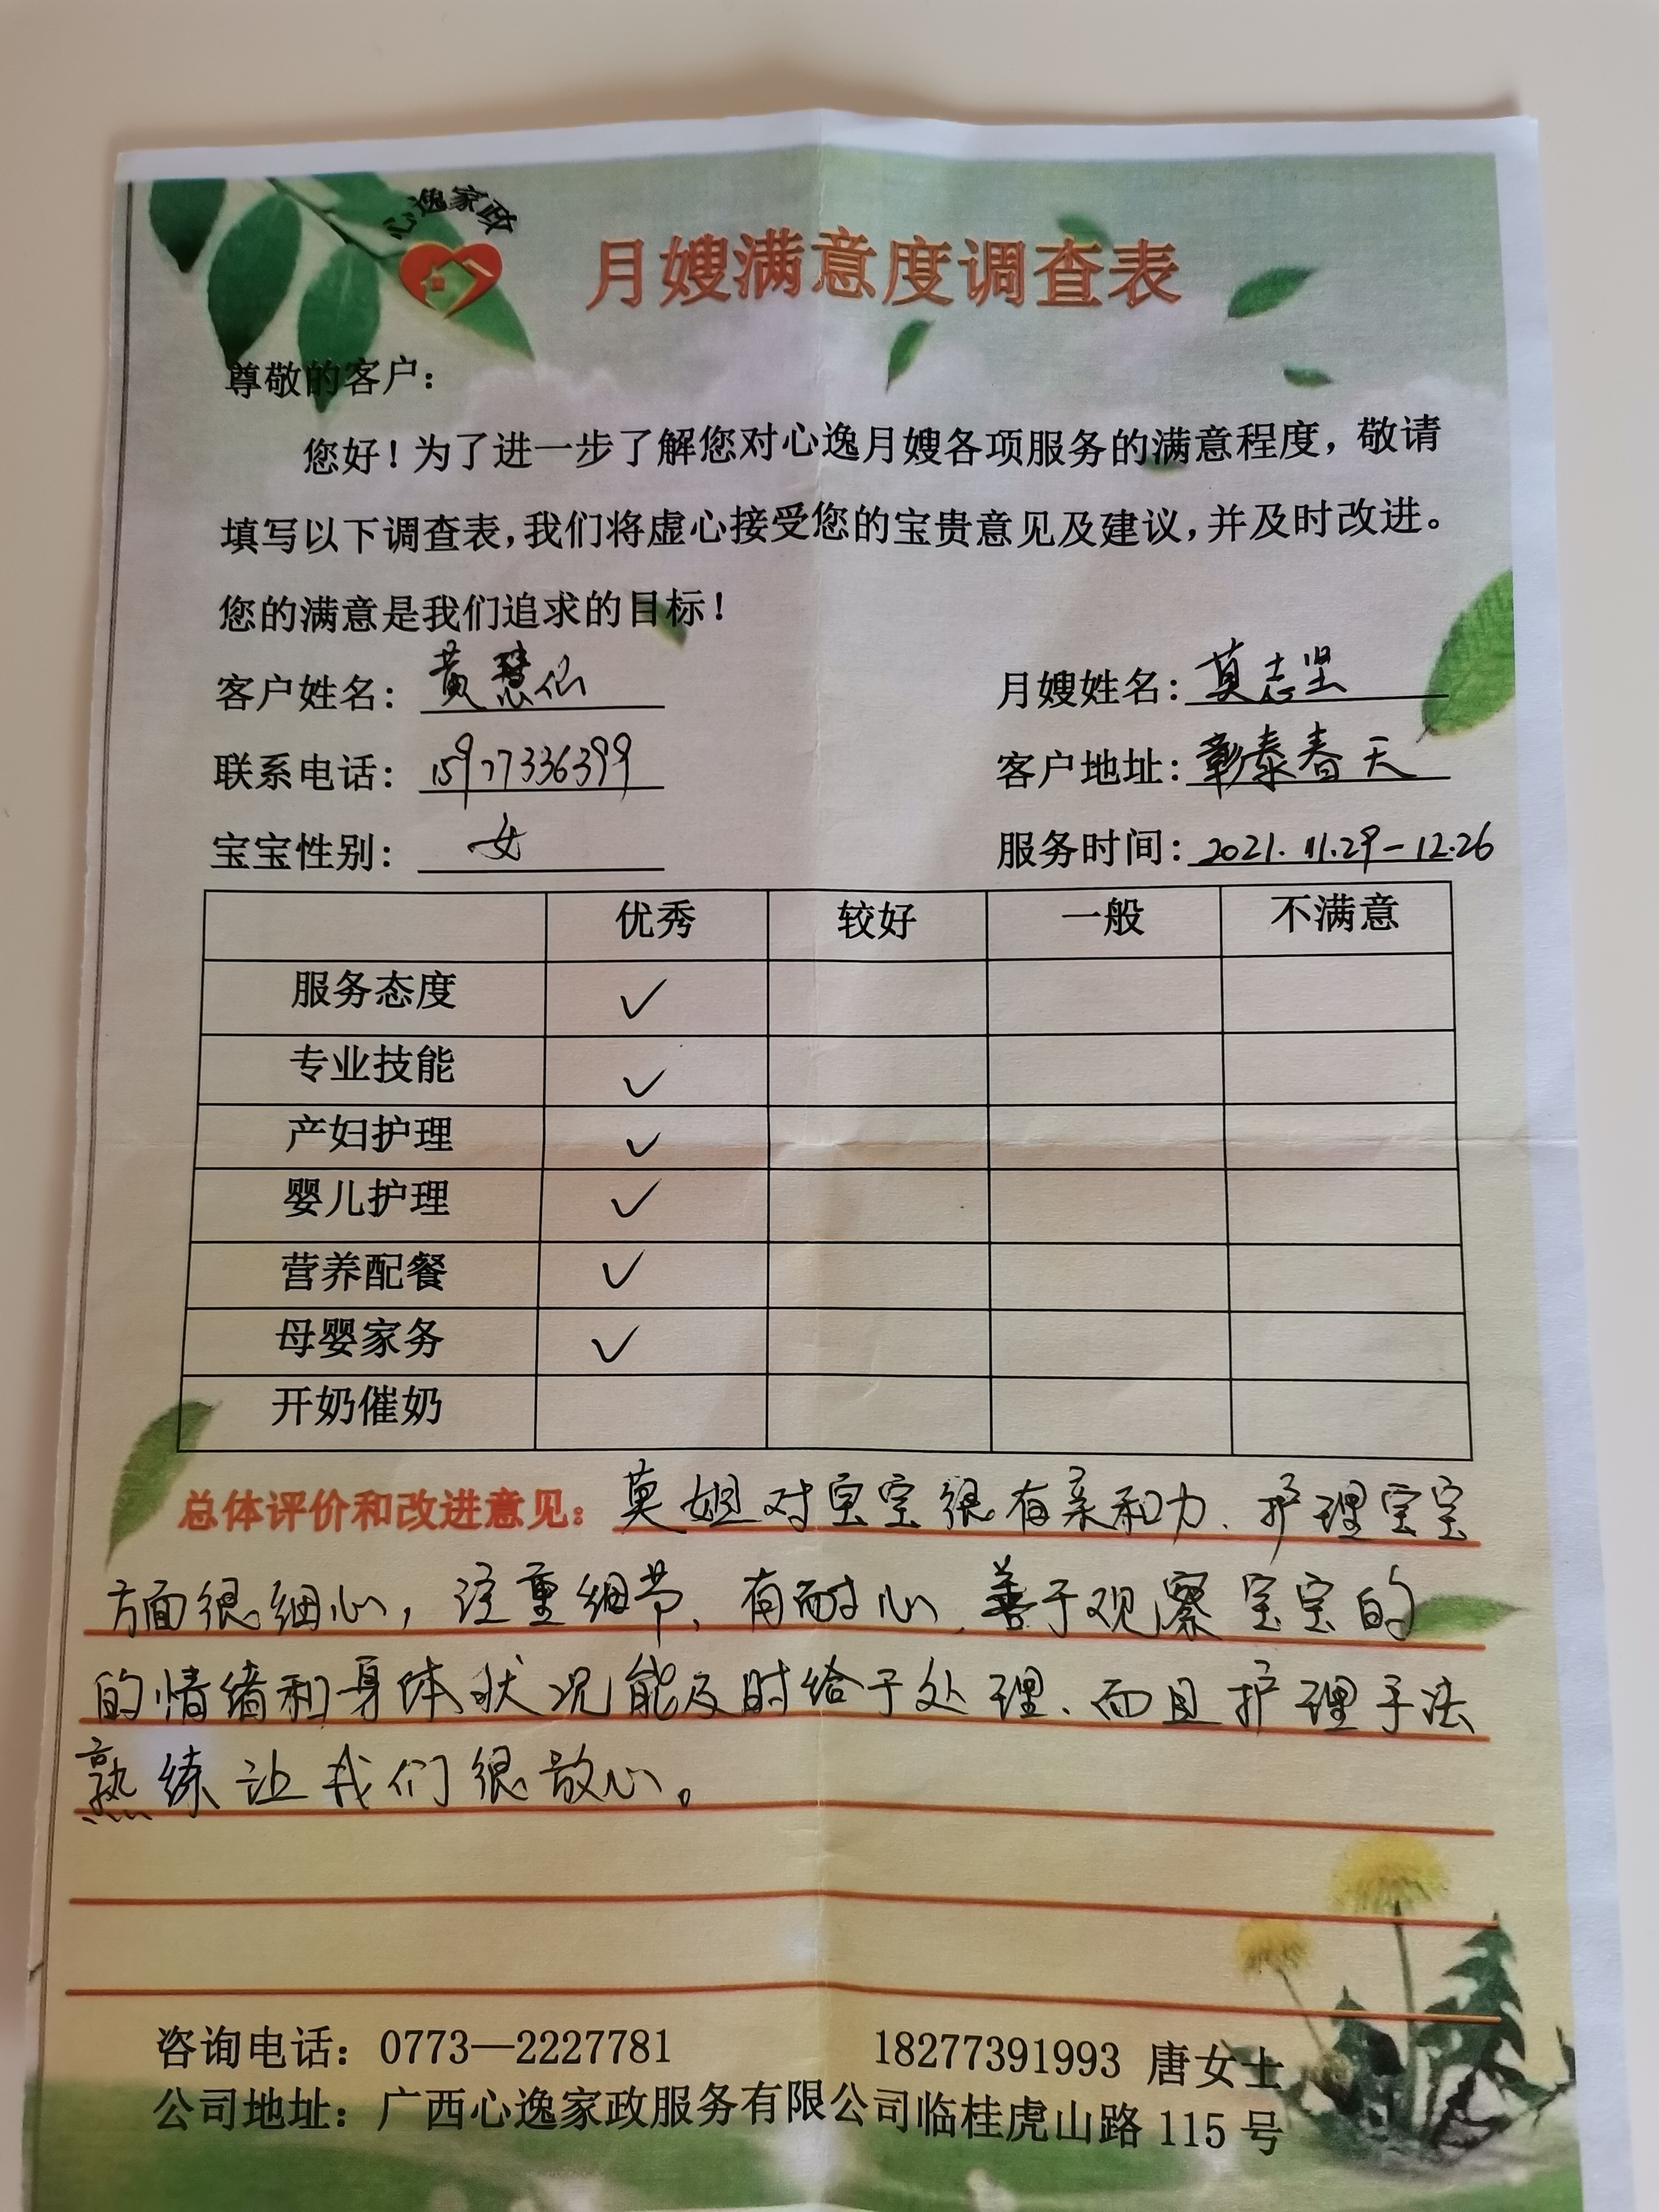 心逸家政
月嫂满意度调查表
尊敬的客户：
您好！为了进一步了解您对心逸月嫂各项服务的满意程度，敬请
填写以下调查表，我们将虚心接受您的宝贵意见及建议，并及时改进。
您的满意是我们追求的目标！
客户姓名：黄慧仙 月嫂姓名：莫志坚
联系电话：15977336399 客户地址：彰泰春天
宝宝性别：女 服务时间：2021.11.29-12.26
优秀 较好 一般 不满意
服务态度 ✓
专业技能 ✓
产妇护理 ✓
婴儿护理 ✓
营养配餐 ✓
母婴家务 ✓
开奶催奶
总体评价和改进意见：莫姐对宝宝很有亲和力、护理宝宝
方面很细心，注重细节、有耐心、善于观察宝宝的
的情绪和身体状况能及时给予处理、而且护理手法
熟练让我们很放心。
咨询电话：0773—2227781 18277391993 唐女士
公司地址：广西心逸家政服务有限公司临桂虎山路 115 号